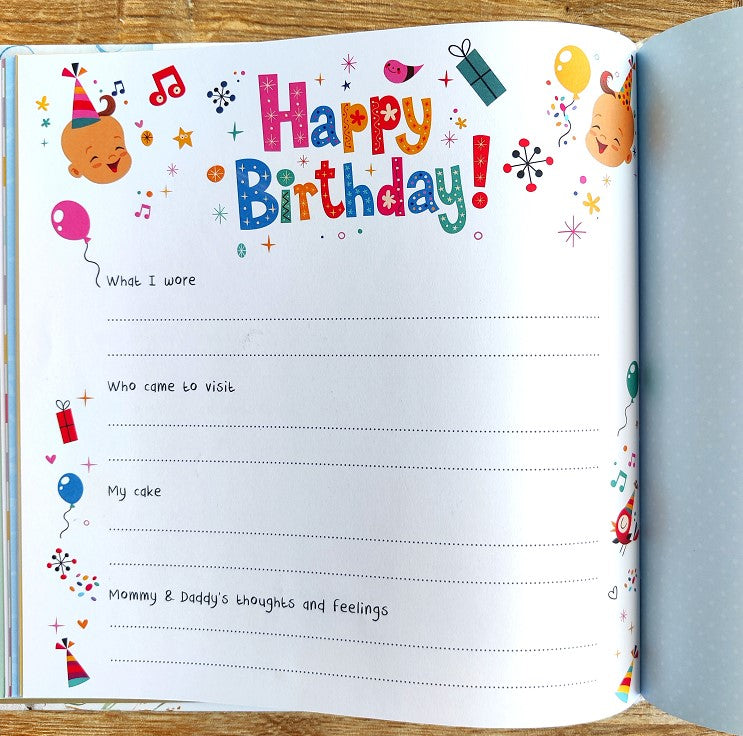 Happy
Birthday!
What I wore
Who came to visit
My cake
Mommy & Daddy's thoughts and feelings